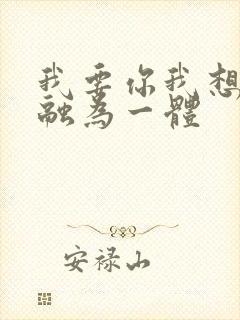 我要你我想
融為一體
安禄山